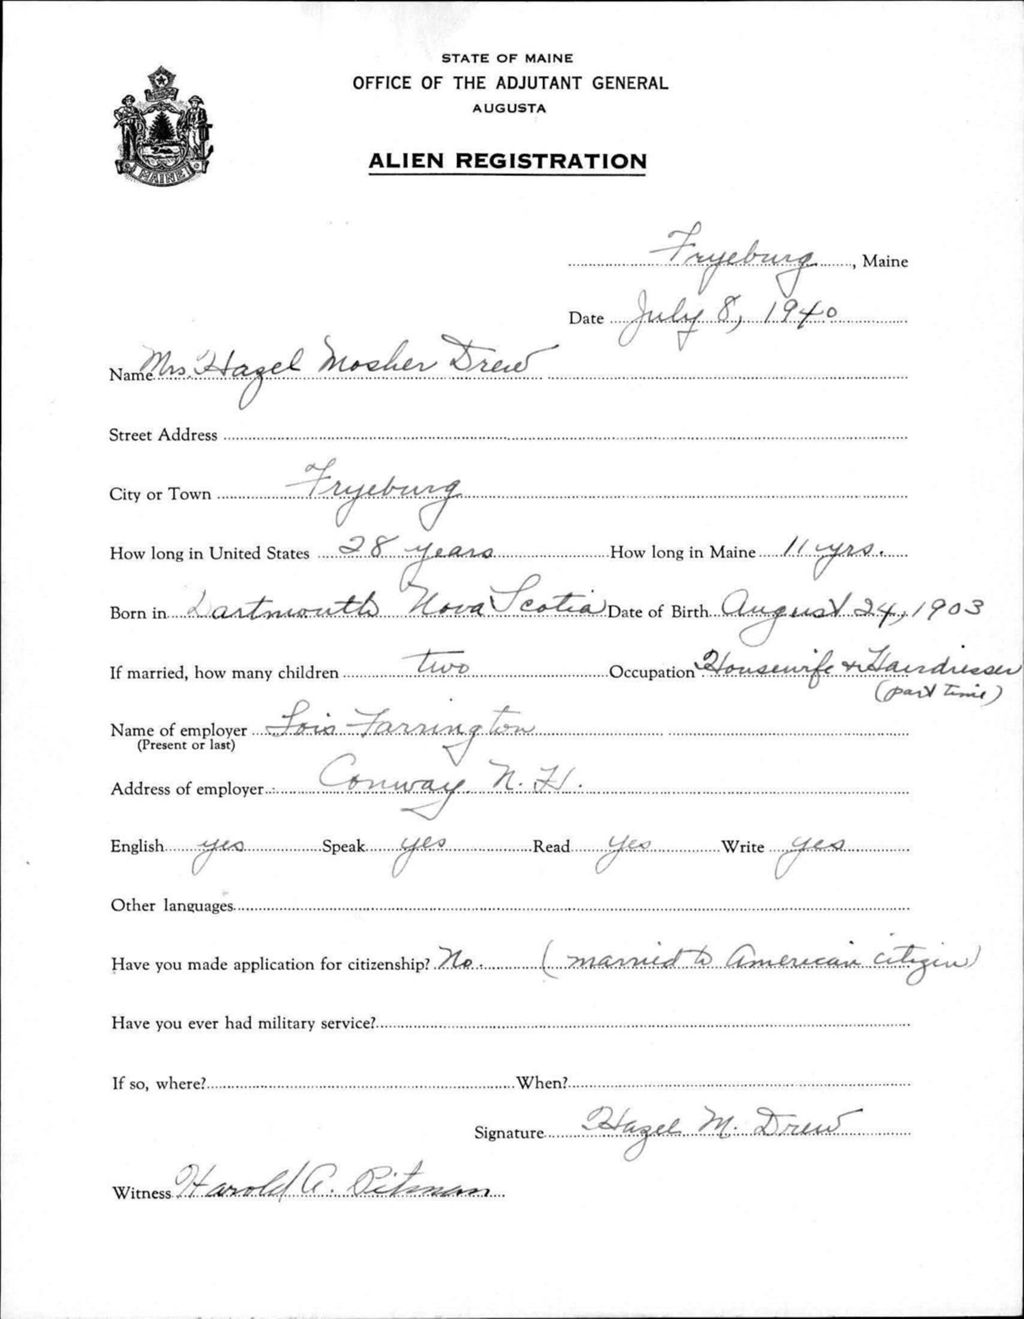 STATE OF MAINE
OFFICE OF THE ADJUTANT GENERAL
AUGUSTA
ALIEN REGISTRATION
MAINE
Fryeburg, Maine
Date July 8, 1940
Name Mrs. Hazel Mosher Drew
Street Address
City or Town Fryeburg
How long in United States 28 years How long in Maine 11 yrs.
Born in Dartmouth Nova Scotia Date of Birth August 24, 1903
If married, how many children two Occupation Housewife & Hairdresser
(part time)
Name of employer Lois Farrington
(Present or last)
Address of employer Conway N. H.
English yes Speak yes Read yes Write yes
Other languages
Have you made application for citizenship? No. (married to American citizen)
Have you ever had military service?
If so, where? When?
Signature Hazel M. Drew
Witness Harold A. Pitman